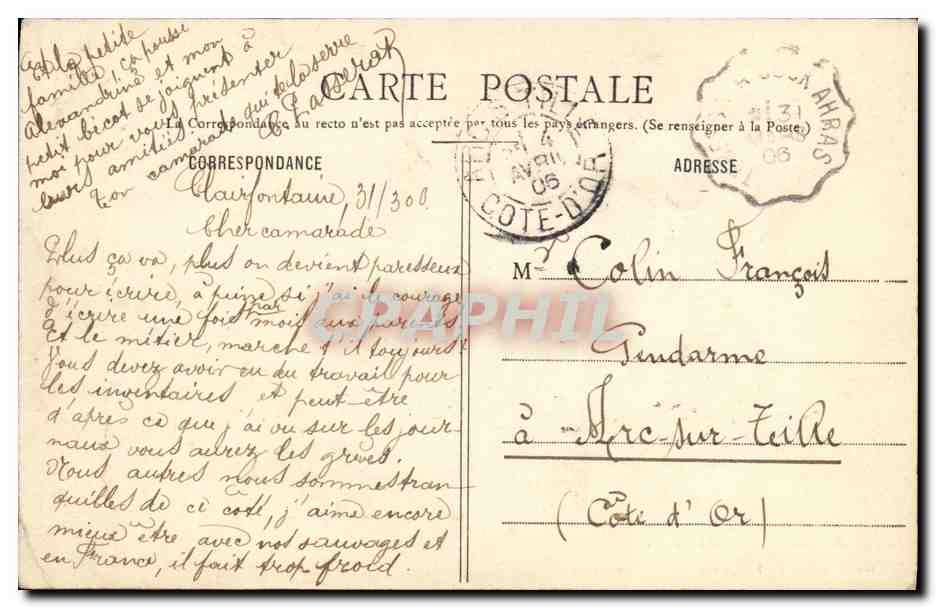 CARTE POSTALE
La Correspondance au recto n'est pas acceptée par tous les pays étrangers. (Se renseigner à la Poste.)
CORRESPONDANCE
ADRESSE
Clairfontaine, 31/3 06
Cher camarade
Plus ça va, plus on devient paresseux
pour écrire, à peine si j'ai le courage
d'écrire une fois par mois aux parents.
Et le métier, marche t'il toujours!
Vous devez avoir eu du travail pour
les inventaires et peut-être
d'après ce que j'ai vu sur les jour-
naux vous aurez les grèves.
Nous autres nous sommes tran
quilles de ce côté, j'aime encore
mieux être avec nos sauvages et
en France, il fait trop froid.
Et la petite
famille, ça pousse
Alexandrine et mon
petit bicot se joignent à
moi pour vous présenter
leurs amitiés.
Ton camarade qui te la serre
M Colin François
Gendarme
à Arc-sur-Teille
(Côte d'Or)
AVRIL
06
COTE-D'OR
AHRAS
31
06
CPAPHIL